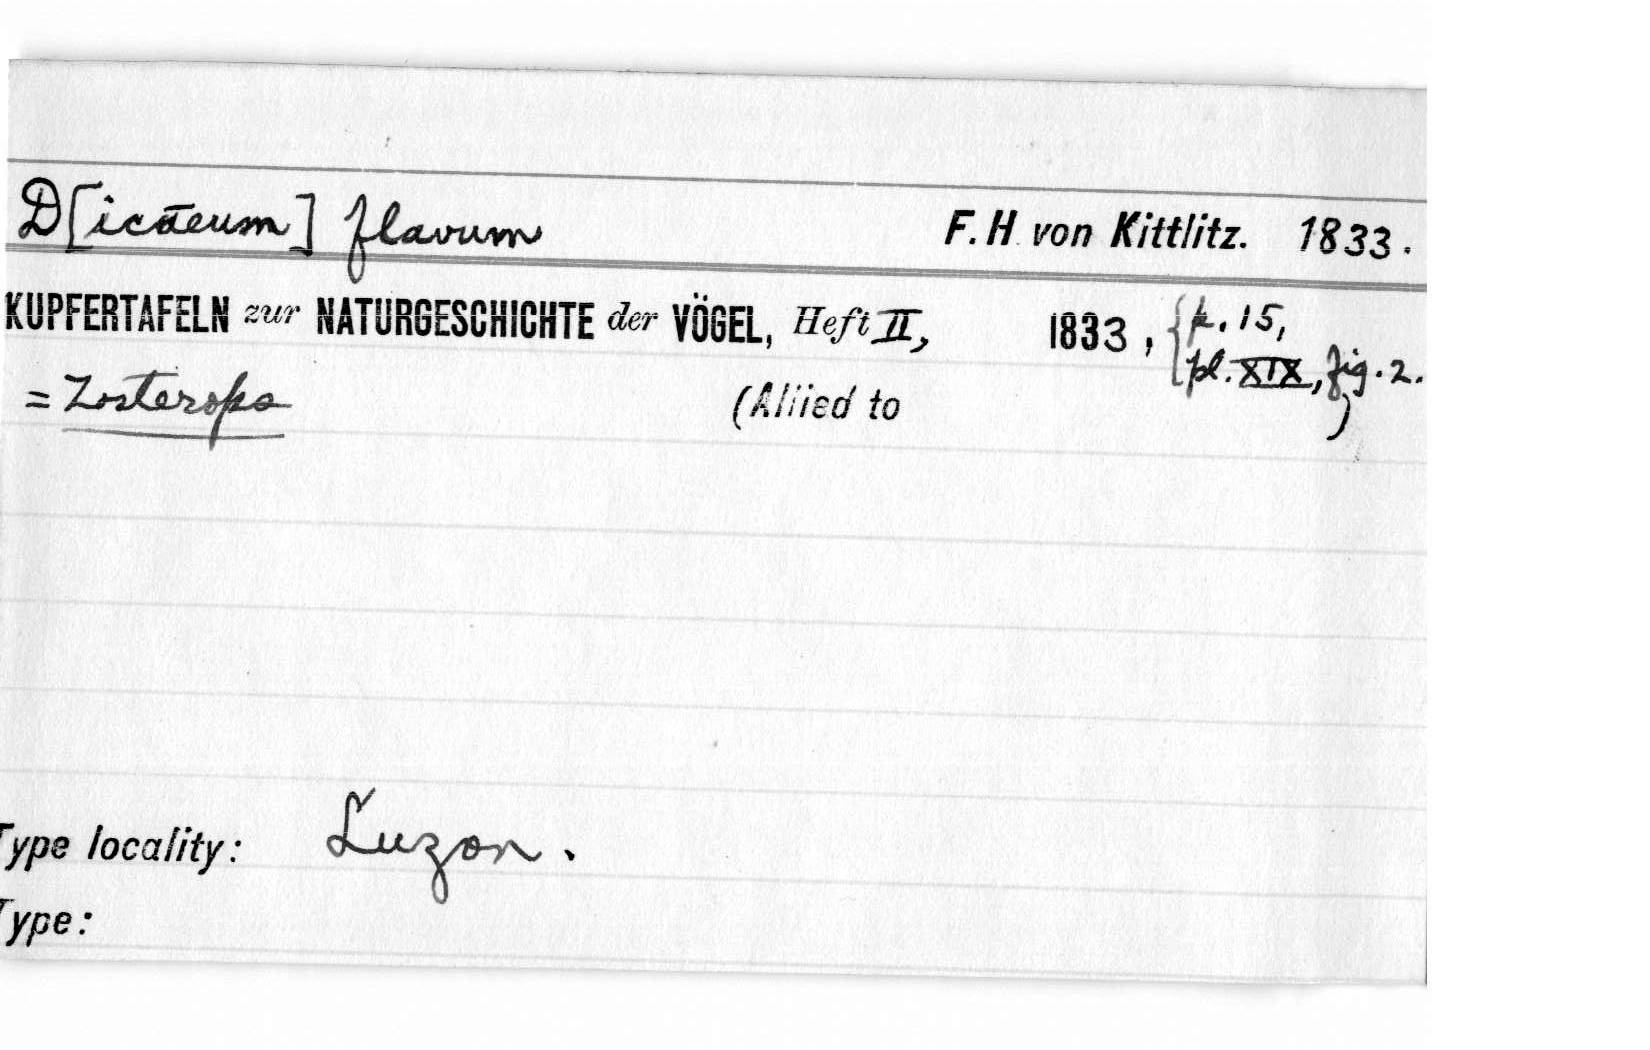 D[icaeum] flavum F. H. von Kittlitz. 1833.
KUPFERTAFELN zur NATURGESCHICHTE der VÖGEL, Heft II, 1833, {p. 15,
pl. XIX, fig. 2.
= Zosterops (Allied to )
Type locality: Luzon.
Type: